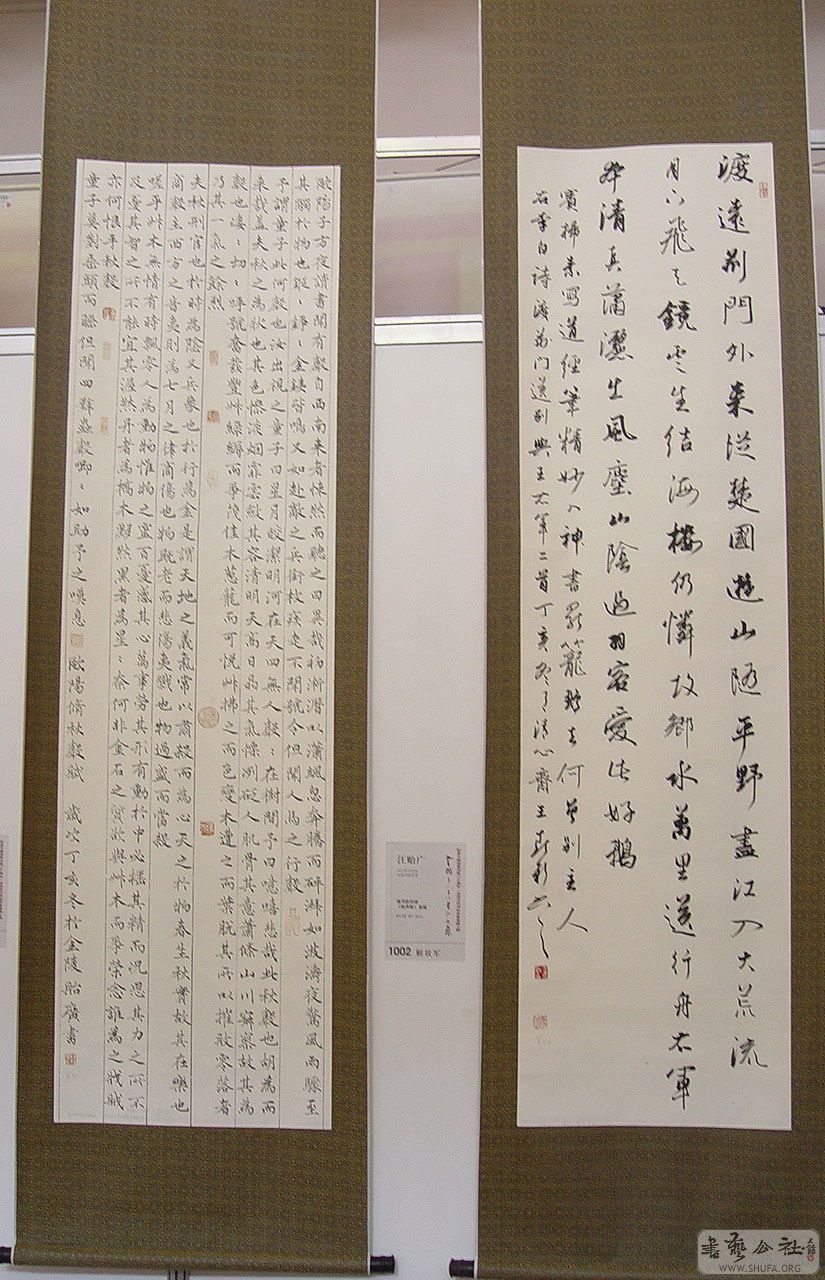 渡遠荊門外来從楚國遊山随平野盡江入大荒流
月下飛天鏡雲生結海樓仍憐故鄉水萬里送行舟右軍
本清真蕭灑出風塵山陰過羽客愛此好鵝
賓掃素寫道經筆精妙入神書罷籠鵝去何曾別主人
右李白詩渡荊門送別與王右軍二首丁亥冬月清心齋王
歐陽子方夜讀書聞有聲自西南来者悚然而聽之曰異哉初淅瀝以瀟颯忽奔騰而砰湃如波濤夜驚風雨驟至
其觸於物也鏦錚金鐵皆鳴又如赴敵之兵銜枚疾走不聞號令但聞人馬之行聲
予謂童子此何聲也汝出視之童子曰星月皎潔明河在天四無人聲〻在樹間予曰噫嘻悲哉此秋聲也胡為而
来哉盖夫秋之為狀也其色慘淡烟霏雲斂其容清明天高日晶其氣慄冽砭人肌骨其意蕭條山川寂寥故其為
聲也凄〻切〻呼號奮發豐艸綠縟而爭茂佳木葱蘢而可悅艸拂之而色變木遭之而葉脫其所以摧敗零落者
乃其一氣之餘烈
夫秋刑官也於時為陰又兵象也於行為金是謂天地之義氣常以肅殺而為心天之於物春生秋實故其在樂也
商聲主西方之音夷則為七月之律商傷也物既老而悲傷夷戮也物過盛而當殺
嗟乎艸木無情有時飄零人為動物惟物之靈百憂感其心萬事勞其形有動於中必搖其精而況思其力之所不
及憂其智之所不能宜其渥然丹者為槁木黟然黑者為星〻奈何非金石之質欲與艸木而爭榮念誰為之戕賊
亦何恨乎秋聲
童子莫對垂頭而睡但聞四壁蟲聲唧〻如助予之嘆息 歐陽脩秋聲賦 歲次丁亥冬於金陵貽廣書
汪贻广
1002 解放军
書藝公社
WWW.SHUFA.ORG